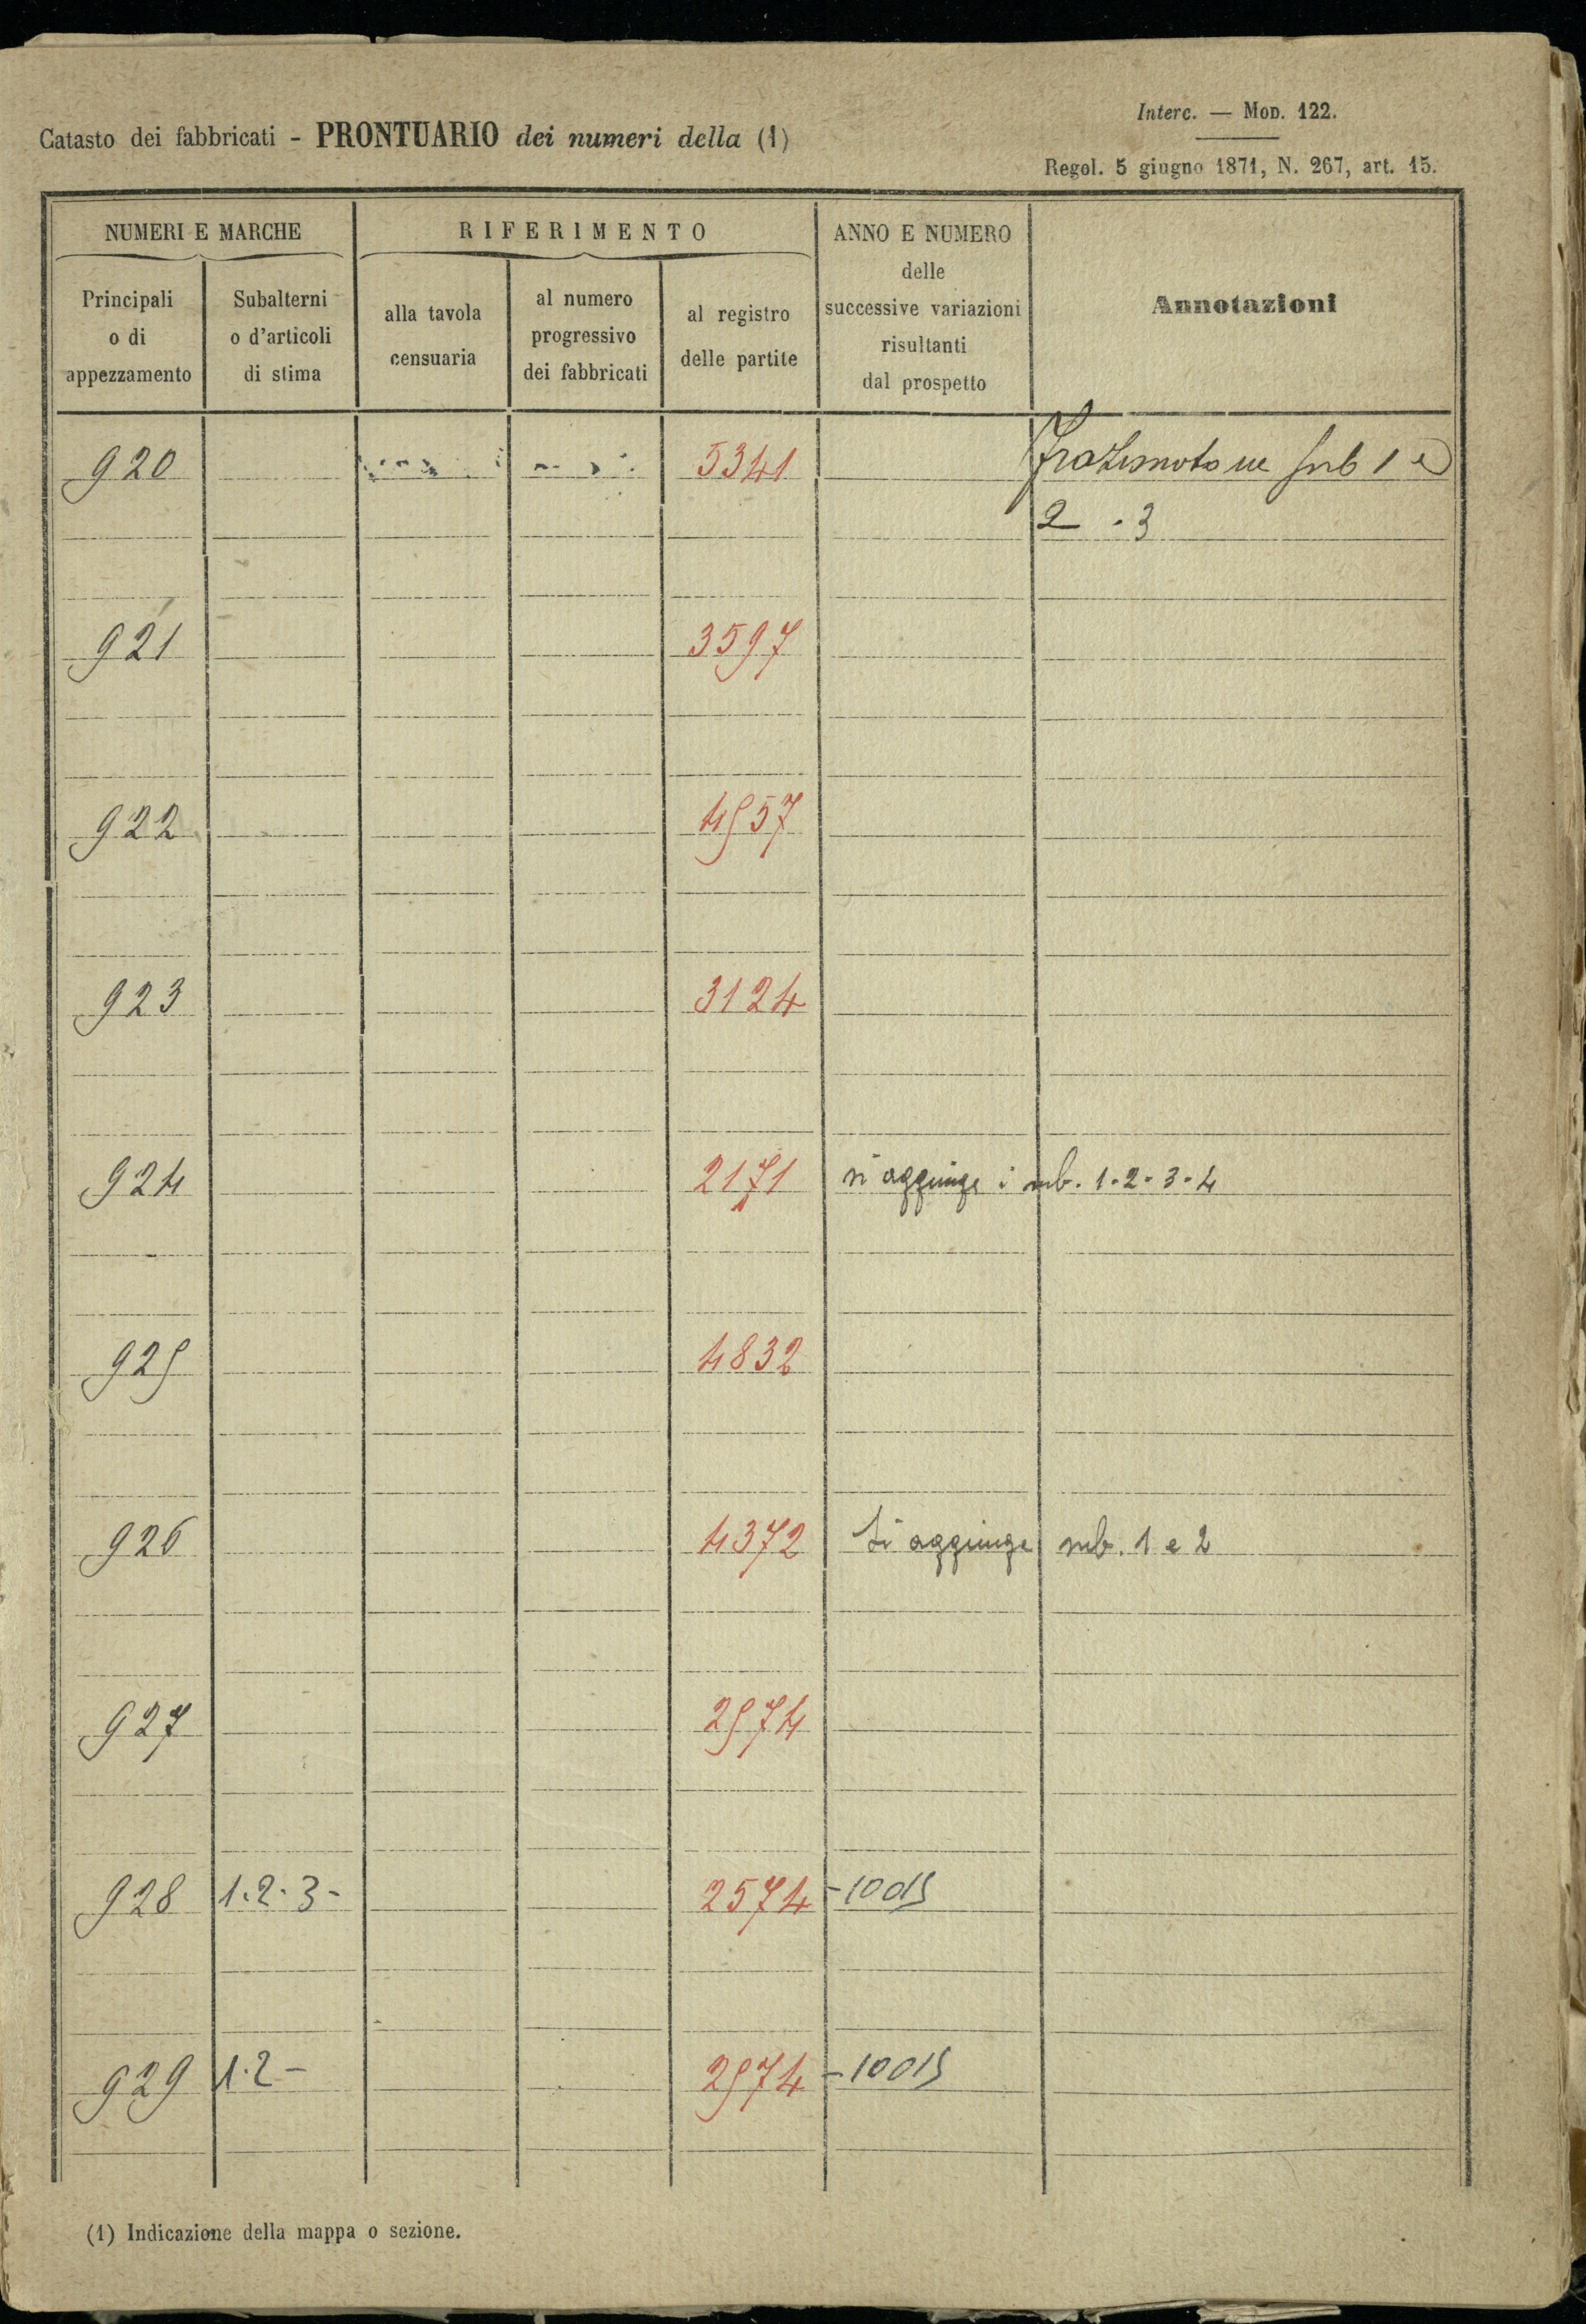 Interc. — Mod. 122.
Catasto dei fabbricati - PRONTUARIO dei numeri della (1)
Regol. 5 giugno 1871, N. 267, art. 15.
NUMERI E MARCHE
RIFERIMENTO
ANNO E NUMERO
delle
successive variazioni
risultanti
dal prospetto
Annotazioni
Principali
o di
appezzamento
Subalterni
o d'articoli
di stima
alla tavola
censuaria
al numero
progressivo
dei fabbricati
al registro
delle partite
920 5341 sub 1 e
2 . 3
921 3597
922 4557
923 3124
924 2171 si aggiunge i sub. 1-2-3-4
925 4832
926 4372 si aggiunge sub. 1 e 2
927 2574
928 1.2.3- 2574 -10015
929 1.2- 2574 -10015
(1) Indicazione della mappa o sezione.